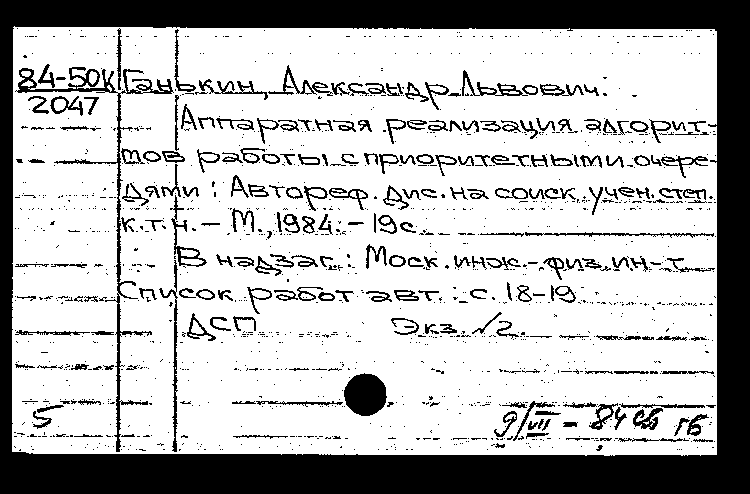 84-50к Ганькин, Александр Львович.
2047
Аппаратная реализация алгорит-
мов работы с приоритетными очере-
дями : Автореф. дис. на соиск. учен. степ.
к.т.н. - М., 1984. - 19с.
В надзаг. : Моск. инж.-физ. ин-т.
Список работ авт. : с. 18-19
ДСП Экз. №2.
5 9/VII - 84